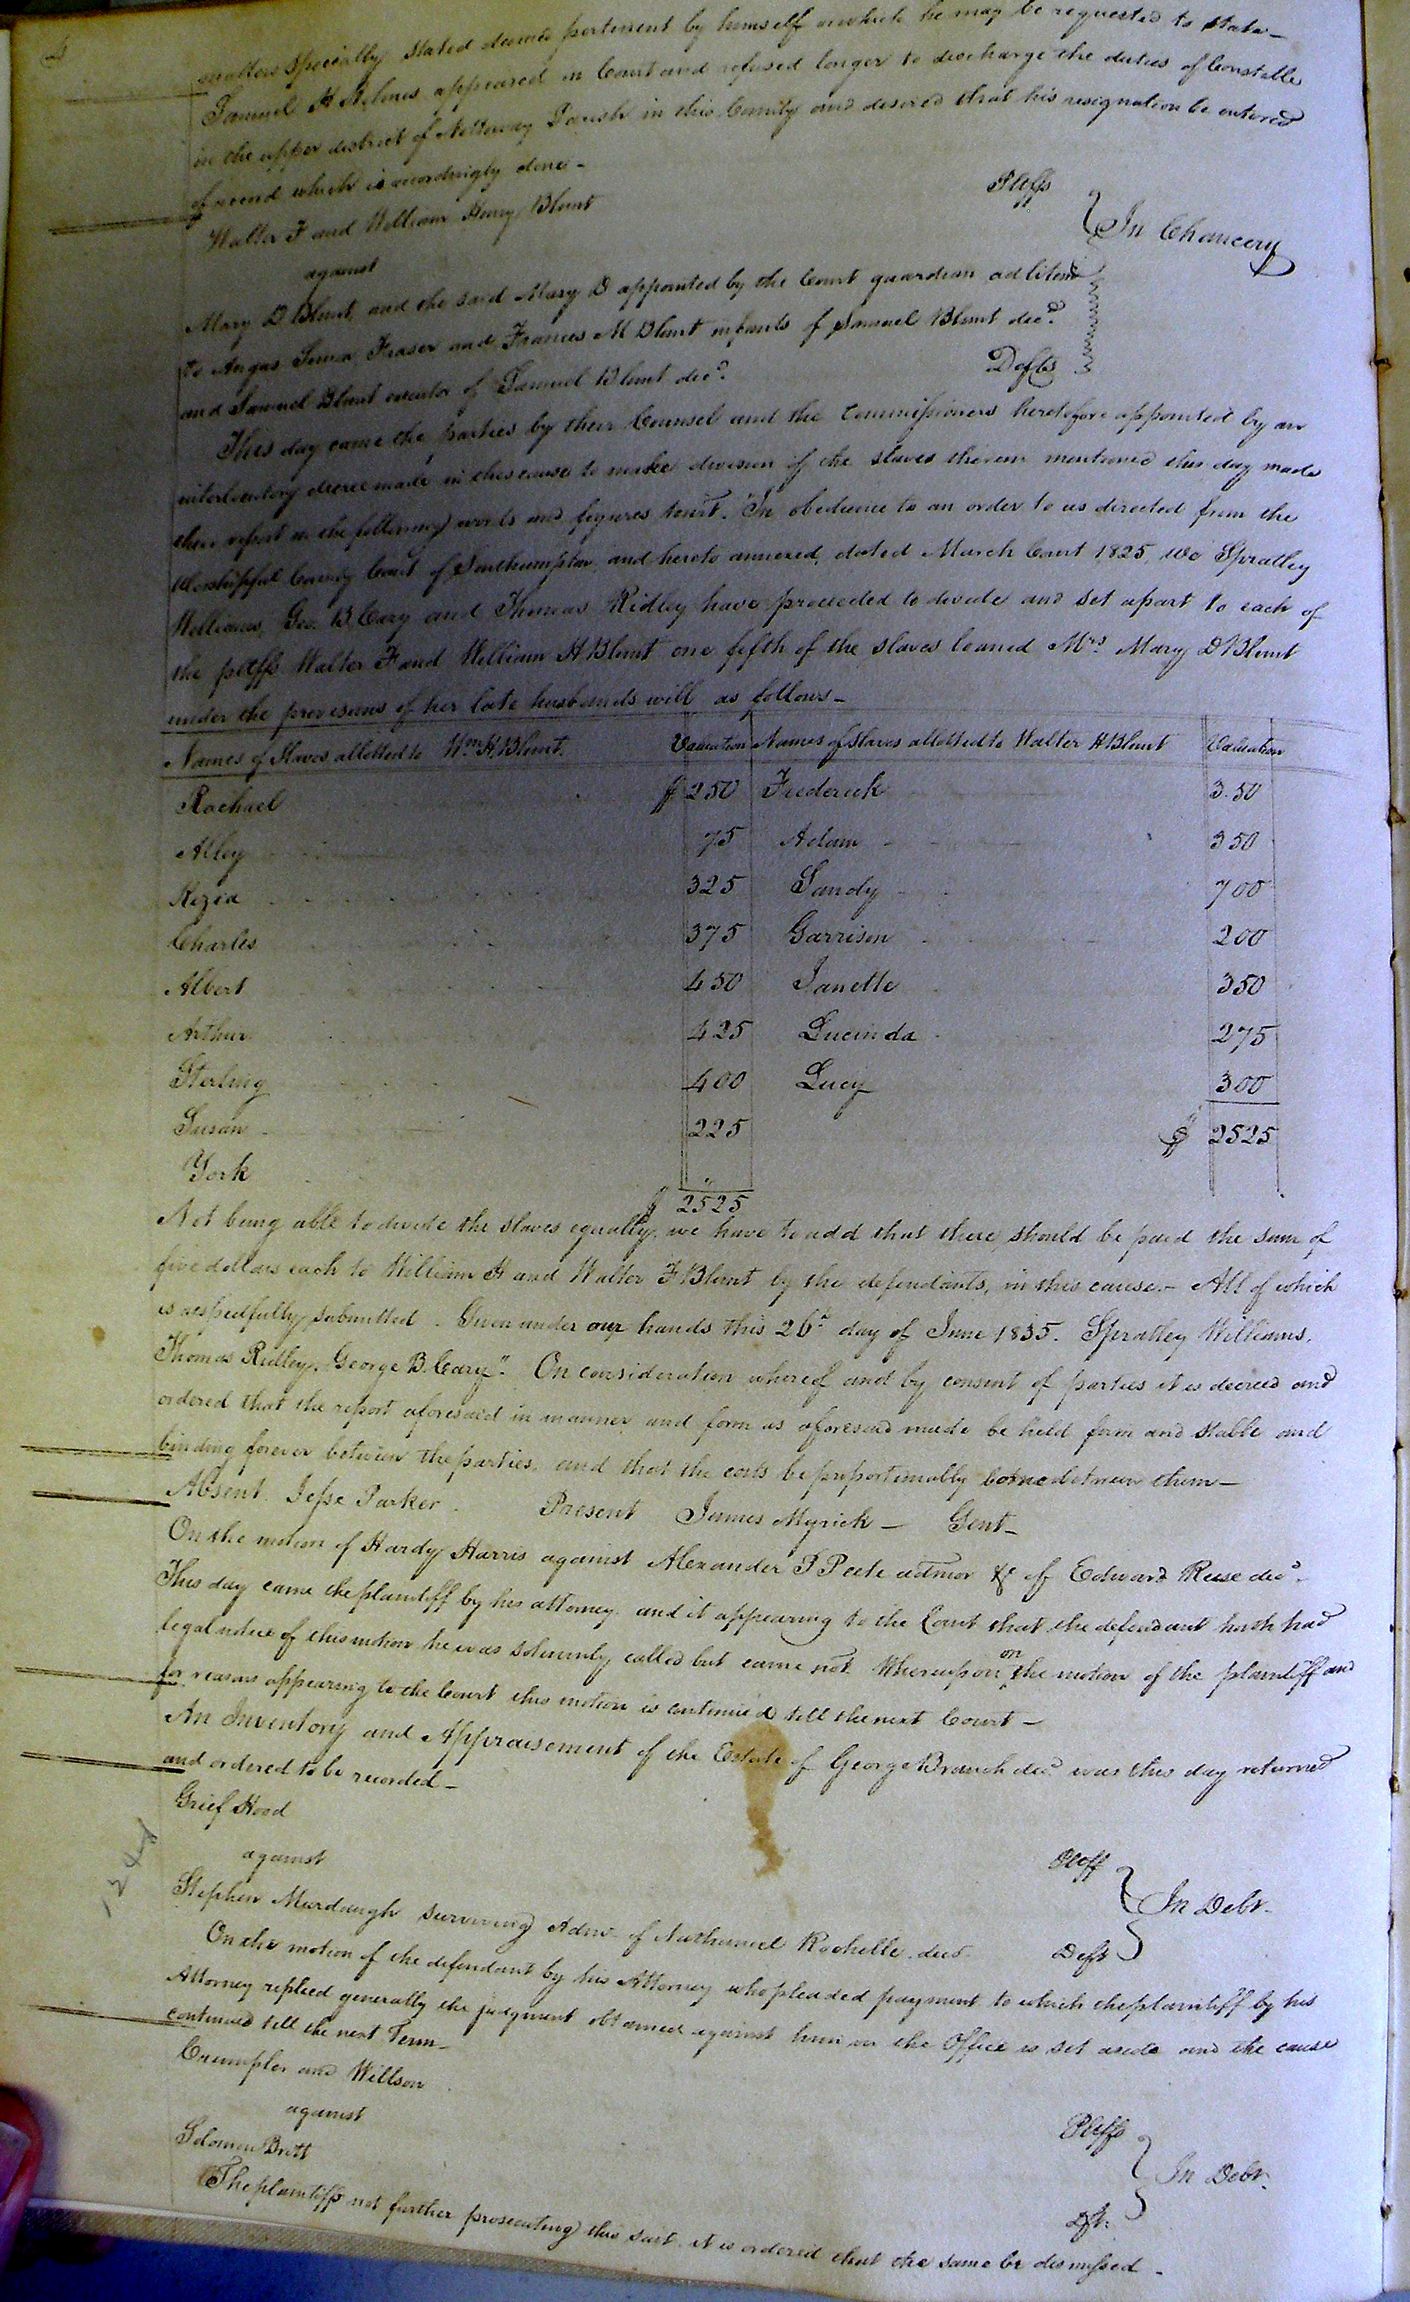 matters specially stated deemed pertinent by himself or which he may be requested to state—
Samuel H Holmes appeared in Court and refused longer to discharge the duties of Constable
in the upper district of Nottoway Parish in this County and desired that his resignation be entered
of record which is accordingly done—
Walter F and William Henry Blunt Pltffs
against In Chancery
Mary D Blunt, and the said Mary D appointed by the Court guardian ad litem
to Angus Simon Fraser and Frances M Blunt infants of Samuel Blunt decd.
and Samuel Blunt executor of Samuel Blunt decd. Defts
This day came the parties by their Counsel and the Commissioners heretofore appointed by an
interlocutory decree made in this cause to make division of the slaves therein mentioned this day made
their report in the following words and figures towit. "In obedience to an order to us directed from the
Worshipful County Court of Southampton, and hereto annexed, dated March Court 1825, We Spratley
Williams, Geo. B. Cary and Thomas Ridley have proceeded to divide and set apart to each of
the pltffs Walter F and William H Blunt one fifth of the slaves loaned Mrs. Mary D Blunt
under the provisions of her late husbands will as follows—
Names of Slaves allotted to Wm. H. Blunt. Valuation Names of slaves allotted to Walter H Blunt Valuation
Rachael $ 250 Frederick 3.50
Alley 75 Adam 350
Kezia 325 Sandy 700
Charles 375 Garrison 200
Albert 450 Janette 350
Arthur 425 Lucinda 275
Sterling 400 Lucy 300
Susan 225 $ 2525
York "
$ 2525
Not being able to divide the slaves equally, we have to add that there should be paid the sum of
five dollars each to William H and Walter F Blunt by the defendants, in this cause.— All of which
is respectfully submitted. Given under our hands this 26th day of June 1835. Spratley Williams,
Thomas Ridley, George B. Cary". On consideration whereof and by consent of parties it is decreed and
ordered that the report aforesaid in manner and form as aforesaid made be held firm and stable and
binding forever between the parties, and that the costs be proportionally borne between them—
Absent Jesse Parker. Present James Myrick— Gent—
On the motion of Hardy Harris against Alexander P Peete admor &c of Edward Reese decd.
This day came the plaintiff by his attorney, and it appearing to the Court that the defendant hath had
legal notice of this motion he was solemnly called but came not. Whereupon on the motion of the plaintiff and
for reasons appearing to the Court this motion is continued till the next Court—
An Inventory and Appraisement of the Estate of George Branch decd. was this day returned
and ordered to be recorded—
Grief Hood Pltff
against In Debt.
Stephen Murdaugh surviving Admr. of Nathaniel Rochelle decd. Deft
On the motion of the defendant by his Attorney who pleaded payment to which the plaintiff by his
Attorney replied generally the judgment obtained against him in the Office is set aside and the cause
continued till the next Term—
Crumpler and Willson Pltffs
against In Debt.
Solomon Britt Dft.
The plaintiffs not further prosecuting this suit it is ordered that the same be dismissed.